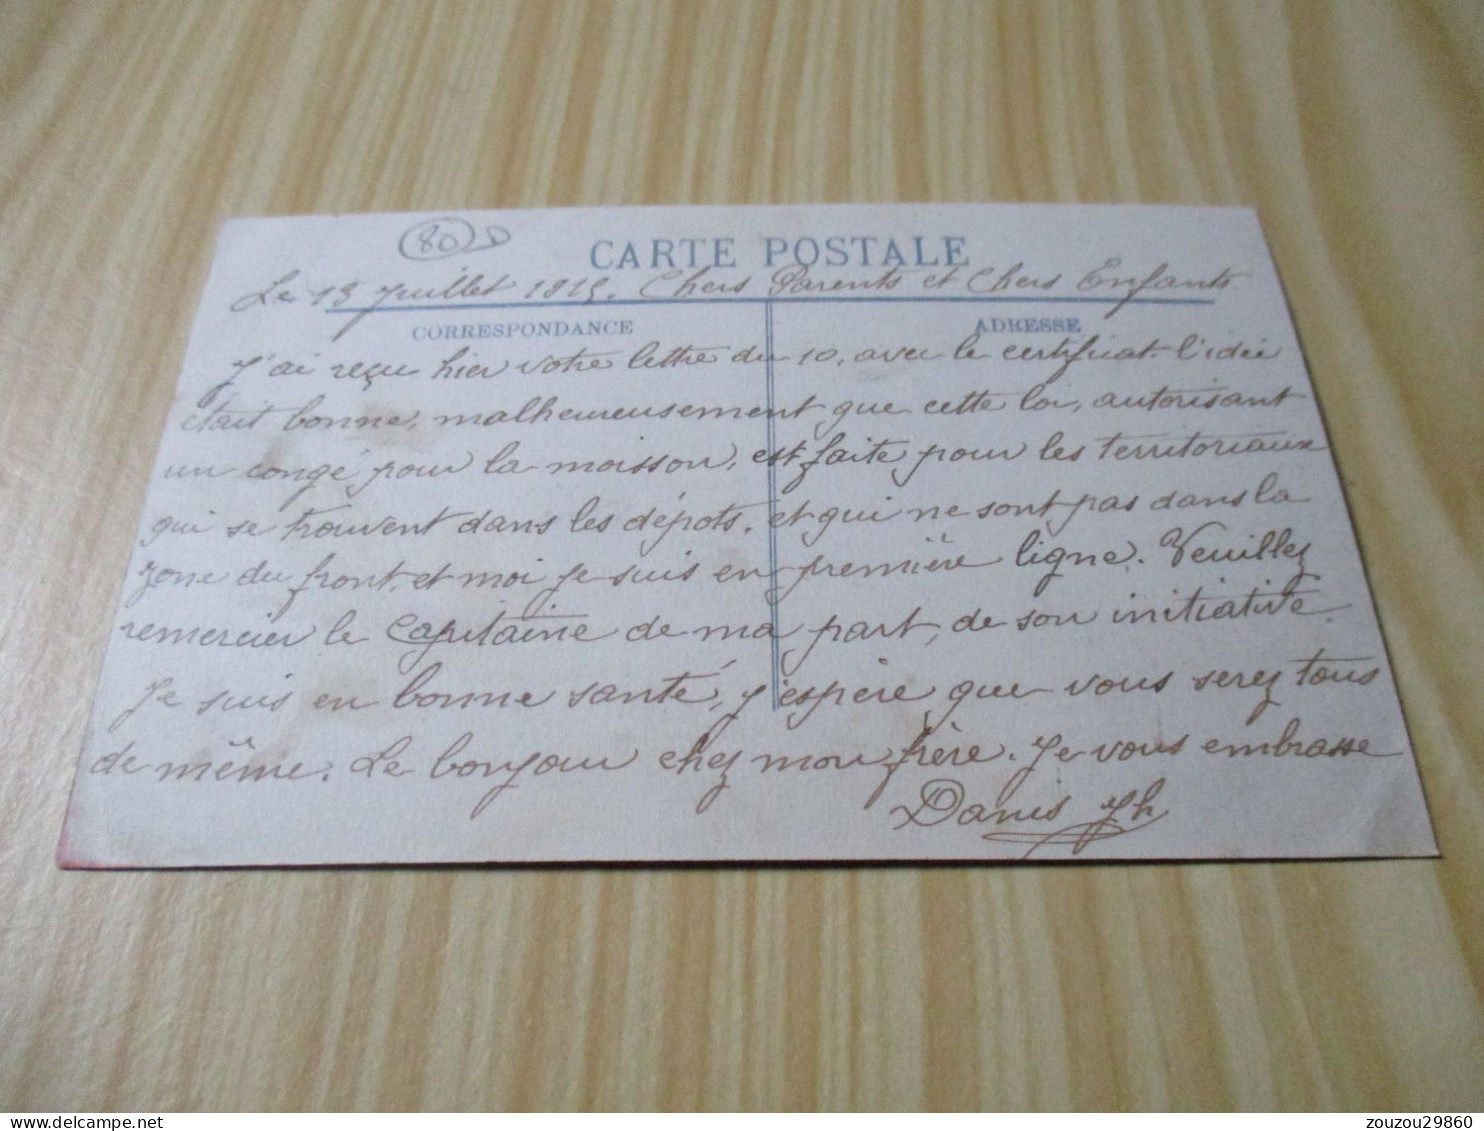 80 D
CARTE POSTALE
Le 13 Juillet 1915. Chers Parents et Chers Enfants
CORRESPONDANCE
ADRESSE
J'ai reçu hier votre lettre du 10, avec le certificat. l'idée
était bonne, malheureusement que cette loi, autorisant
un congé pour la moisson, est faite pour les territoriaux
qui se trouvent dans les dépots. et qui ne sont pas dans la
zone du front, et moi Je suis en première ligne. Veuillez
remercier le Capitaine de ma part, de son initiative.
Je suis en bonne santé, J'espère que vous serez tous
de même. Le bonjour chez mon frère. Je vous embrasse
Danis Jh
zouzou29860